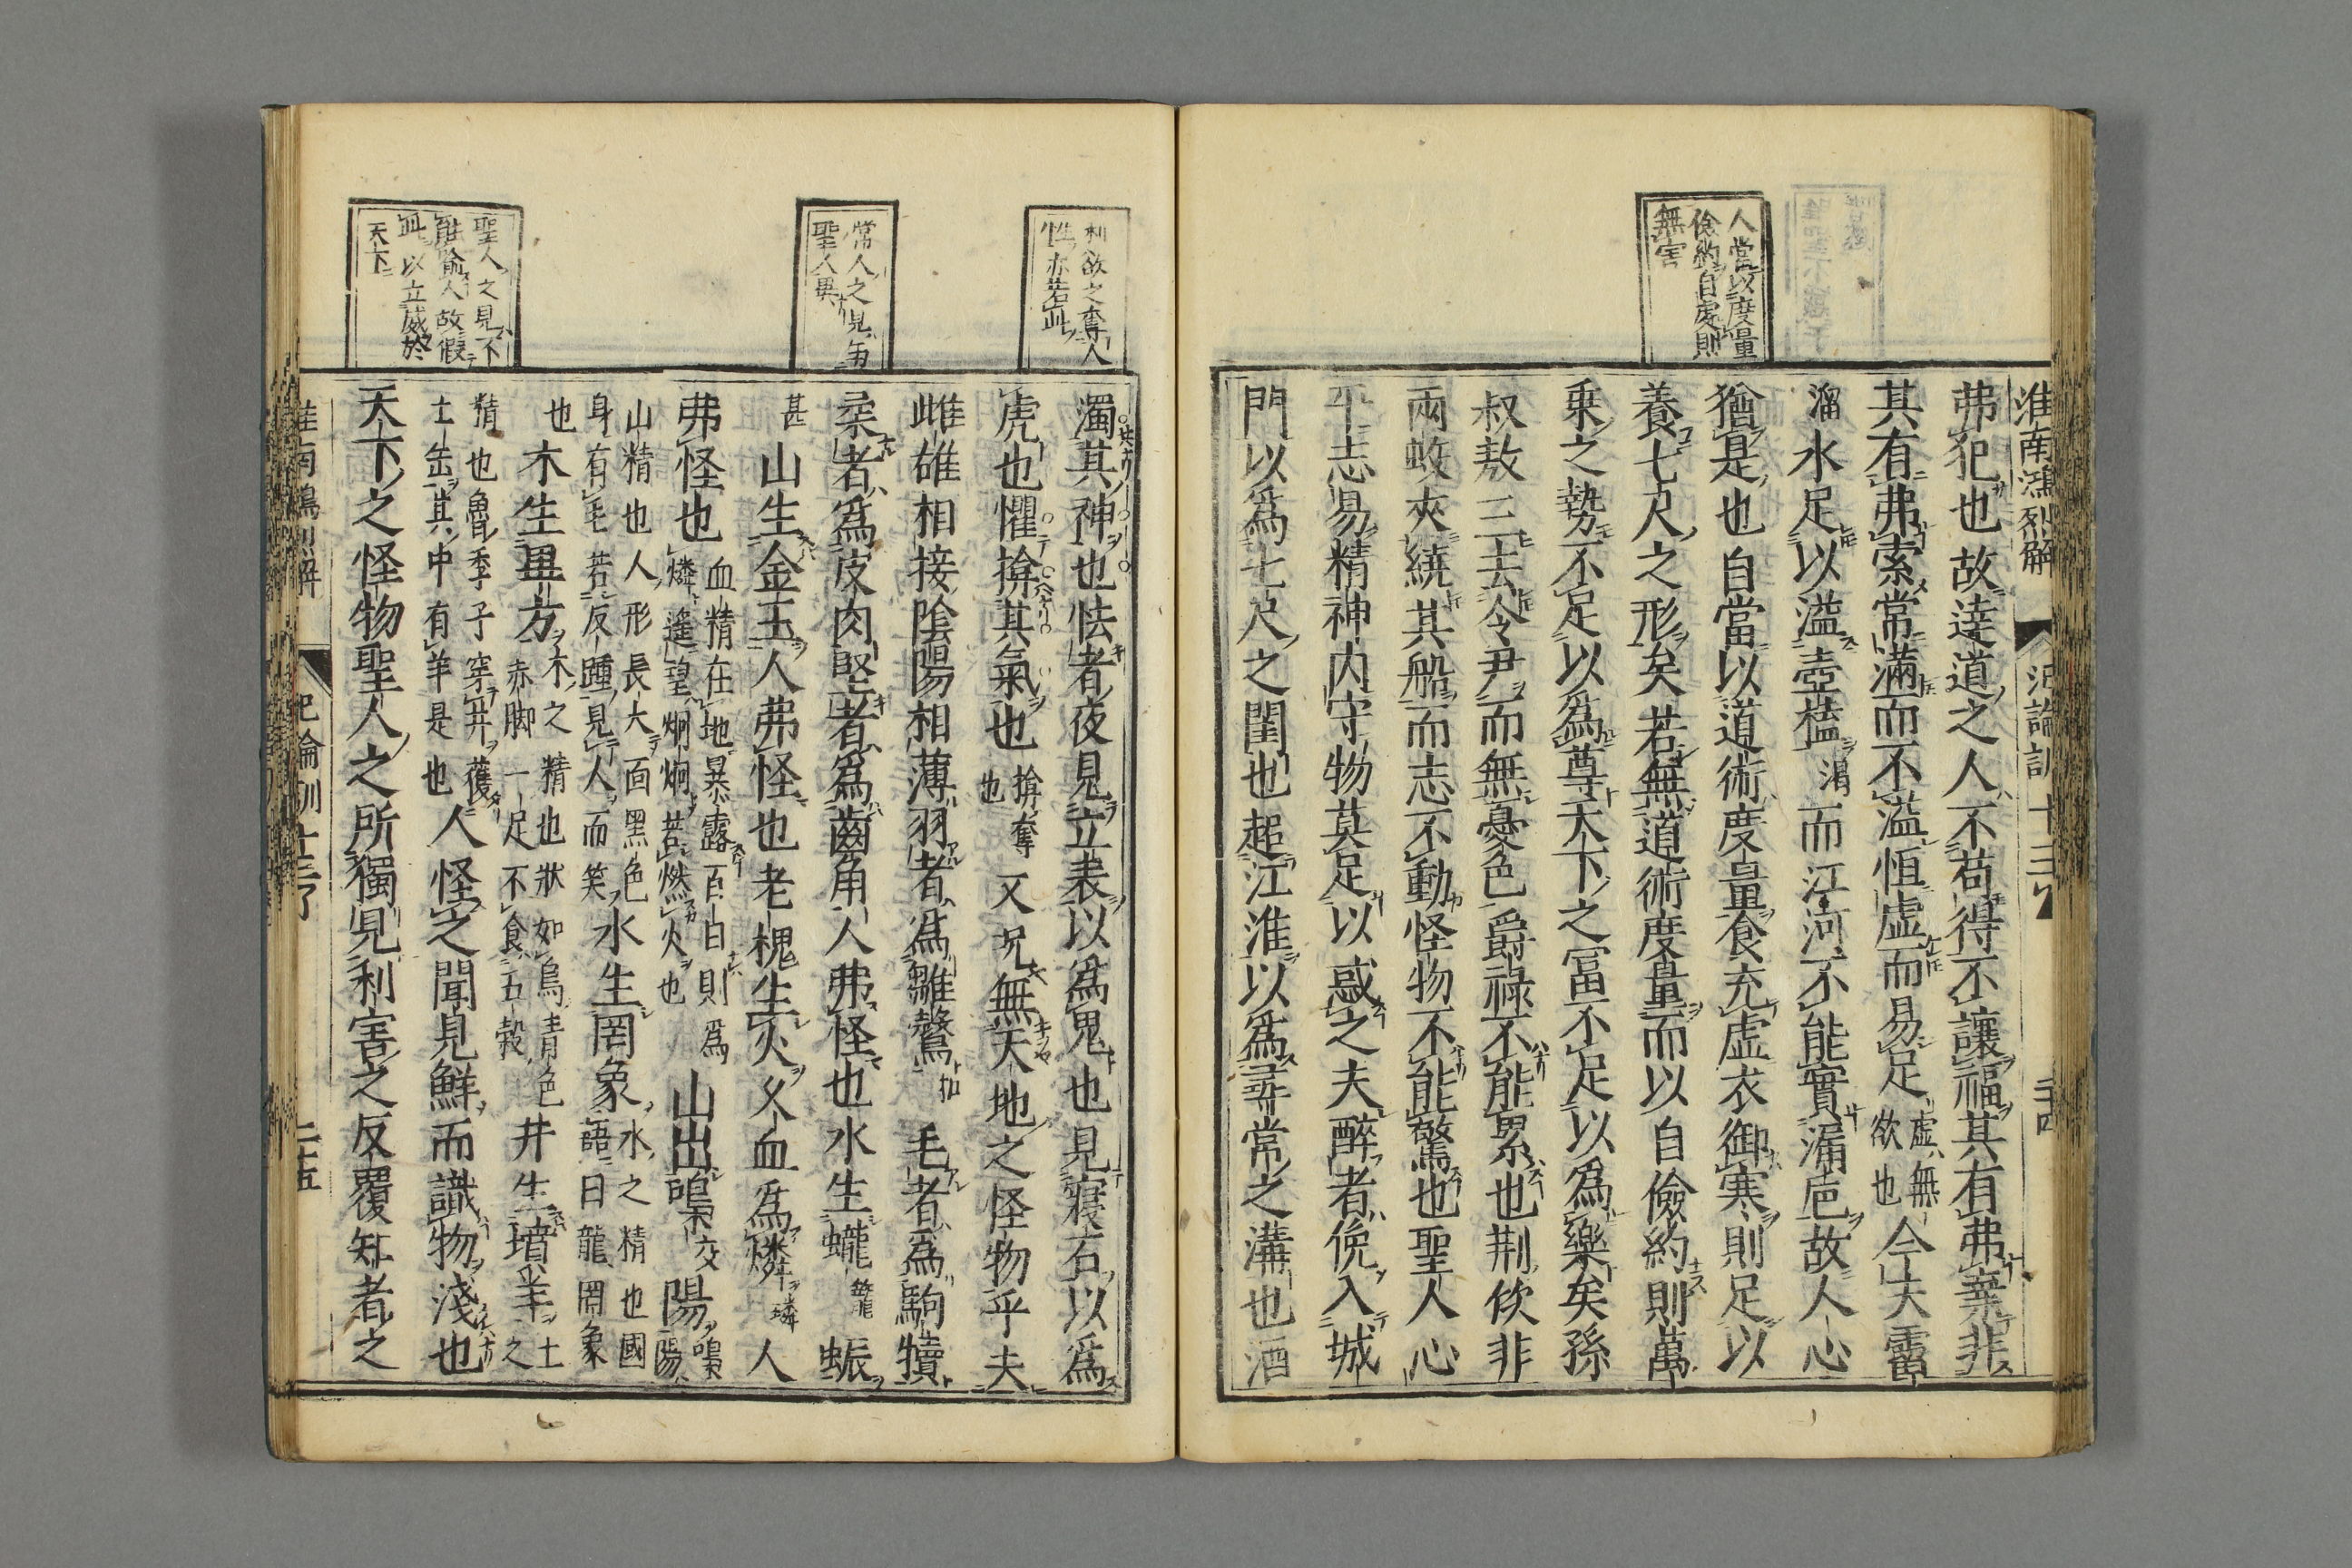 淮南鴻烈解
氾論訓十三
二十四
人當以度量
儉約自處則
無害
弗犯也故達道之人不苟得不讓福其有弗棄非
其有弗索常滿而不溢恒虛而易足虛無欲也今夫霤
溜水足以溢壺榼而江河不能實漏卮故人心
猶是也自當以道術度量食充虛衣御寒則足以
養七尺之形矣若無道術度量而以自儉約則萬
乗之勢不足以為尊天下之富不足以為樂矣孫
叔敖三去令尹而無憂色爵祿不能累也荆佽非
兩蛟夾繞其船而志不動怪物不能驚也聖人心
平志易精神内守物莫足以惑之夫醉者俛入城
門以爲七尺之閨也超江淮以爲尋常之溝也酒
利欲之奪人
性亦若此
常人之見與
聖人異
聖人之見不
能喻人故假
此以立威於
天下
濁其神也怯者夜見立表以爲鬼也見寢石以爲
虎也懼揜其氣也揜奪也又況無天地之怪物乎夫
雌雄相接陰陽相薄羽者爲雛鷇毛者爲駒犢
柔者爲皮肉堅者爲齒角人弗怪也水生蠬蜄
甚山生金玉人弗怪也老槐生火久血爲燐人
弗怪也血精在地暴露百日則爲燐遥望炯炯若燃火也山出嘄陽嘄陽
山精也人形長大面黑色身有毛若反踵見人而笑水生罔象水之精也國語曰龍罔象
也木生畢方木之精也狀如烏青色赤脚一足不食五穀井生墳羊土之
精也魯季子穿井獲土缶其中有羊是也人怪之聞見鮮而識物淺也
天下之怪物聖人之所獨見利害之反覆知者之
淮南鴻烈解
氾論訓十三
二十五